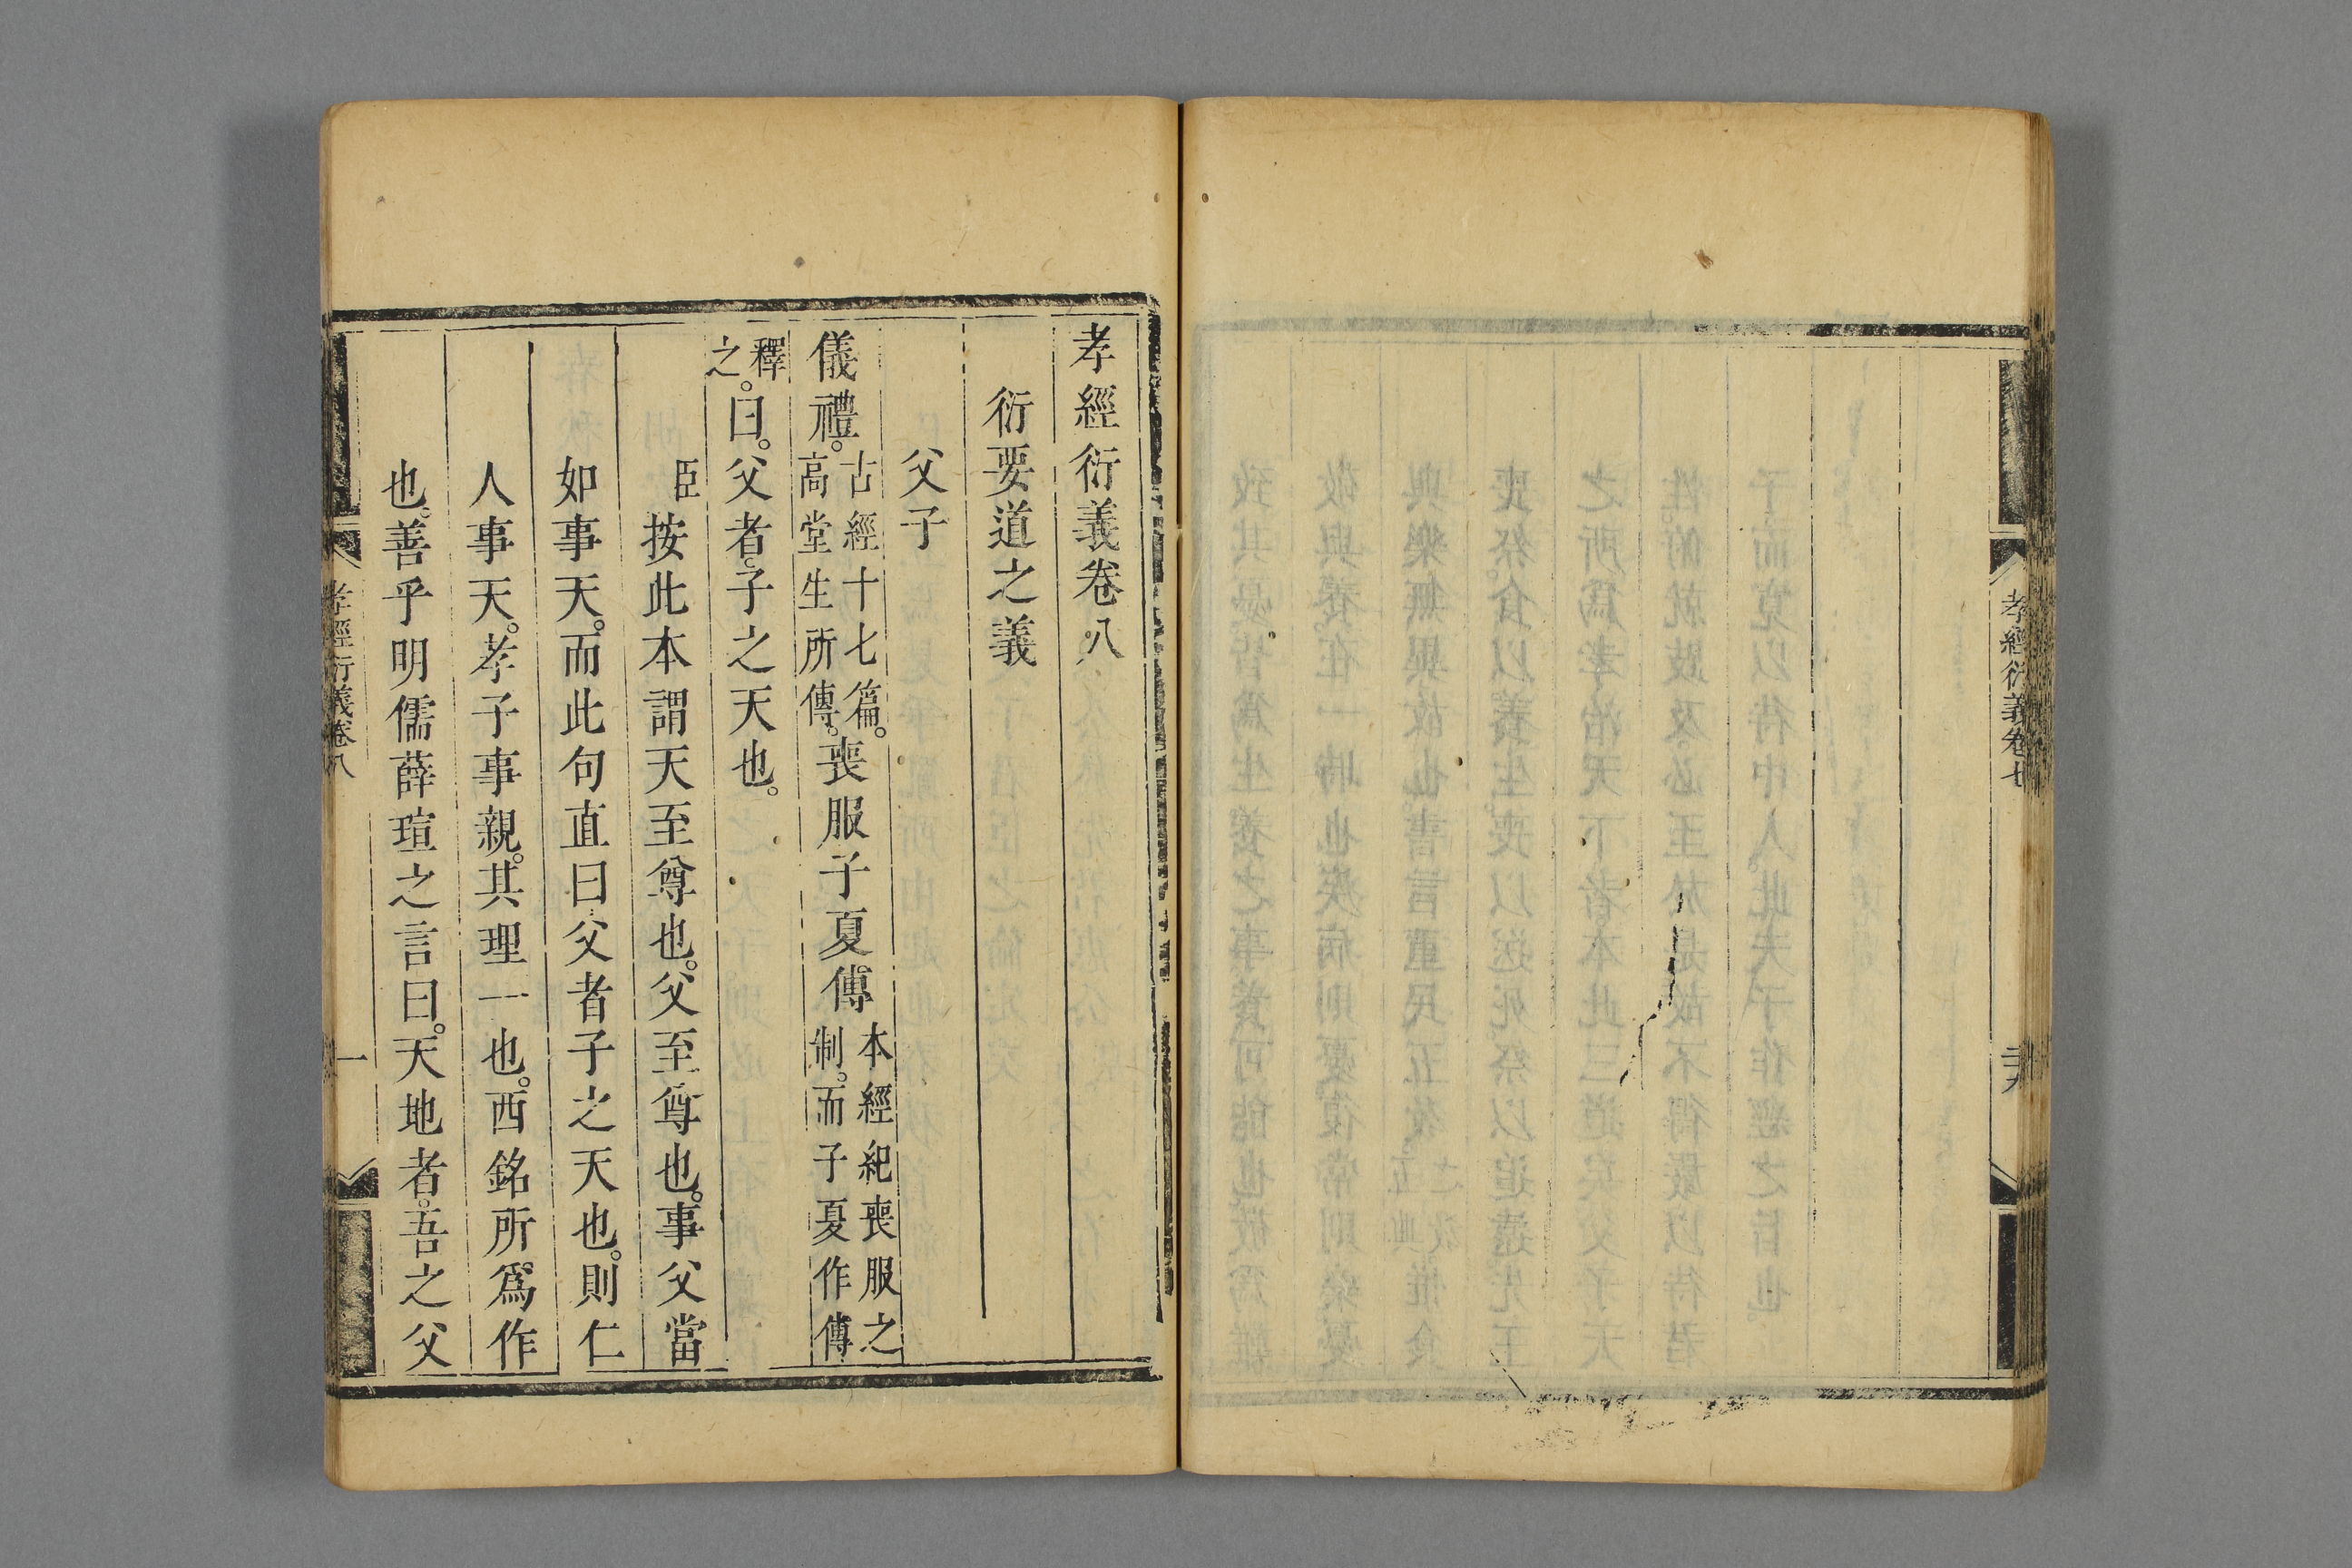 孝經衍義卷七
孝經衍義卷八
衍要道之義
父子
儀禮。古經十七篇。高堂生所傳。喪服子夏傳本經紀喪服之制。而子夏作傳
釋之。曰。父者。子之天也。
臣按此本謂天至尊也。父至尊也。事父當
如事天。而此句直曰父者子之天也。則仁
人事天。孝子事親。其理一也。西銘所爲作
也。善乎明儒薛瑄之言曰。天地者。吾之父
孝經衍義卷八
一